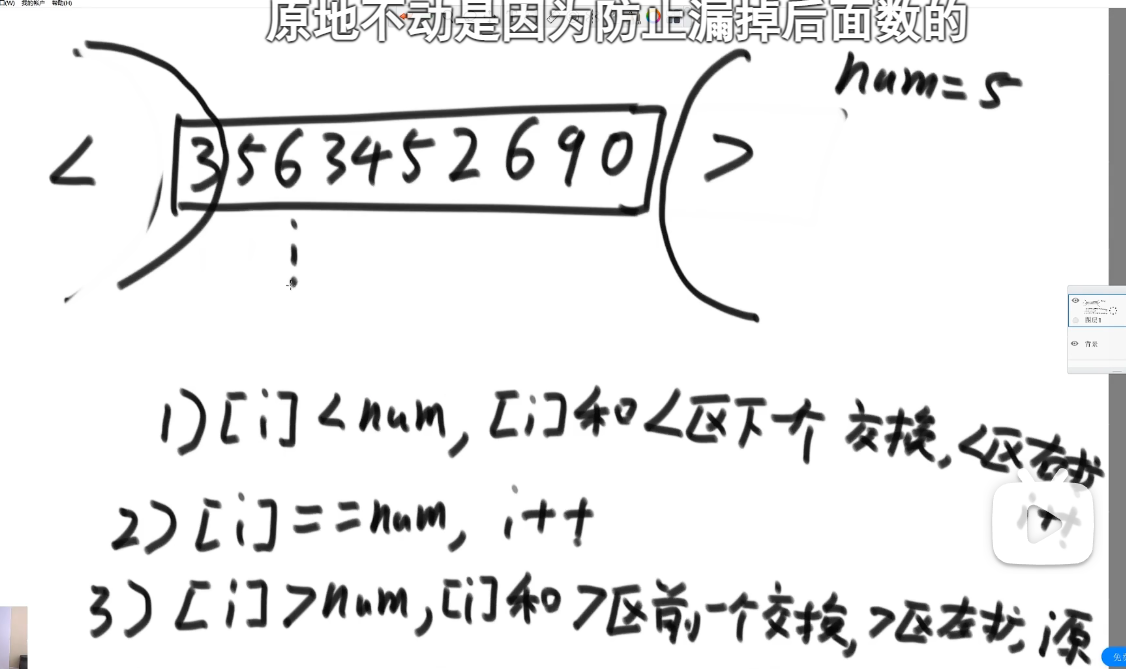 (W) 我的帐户 帮助(H)
原地不动是因为防止漏掉后面数的
num=5
< 3 5 6 3 4 5 2 6 9 0 >
图层1
背景
1) [i] < num, [i]和<区下一个 交换, <区右扩
i++
2) [i] == num, i++
3) [i] > num, [i]和>区前一个交换, >区左扩, i源
免